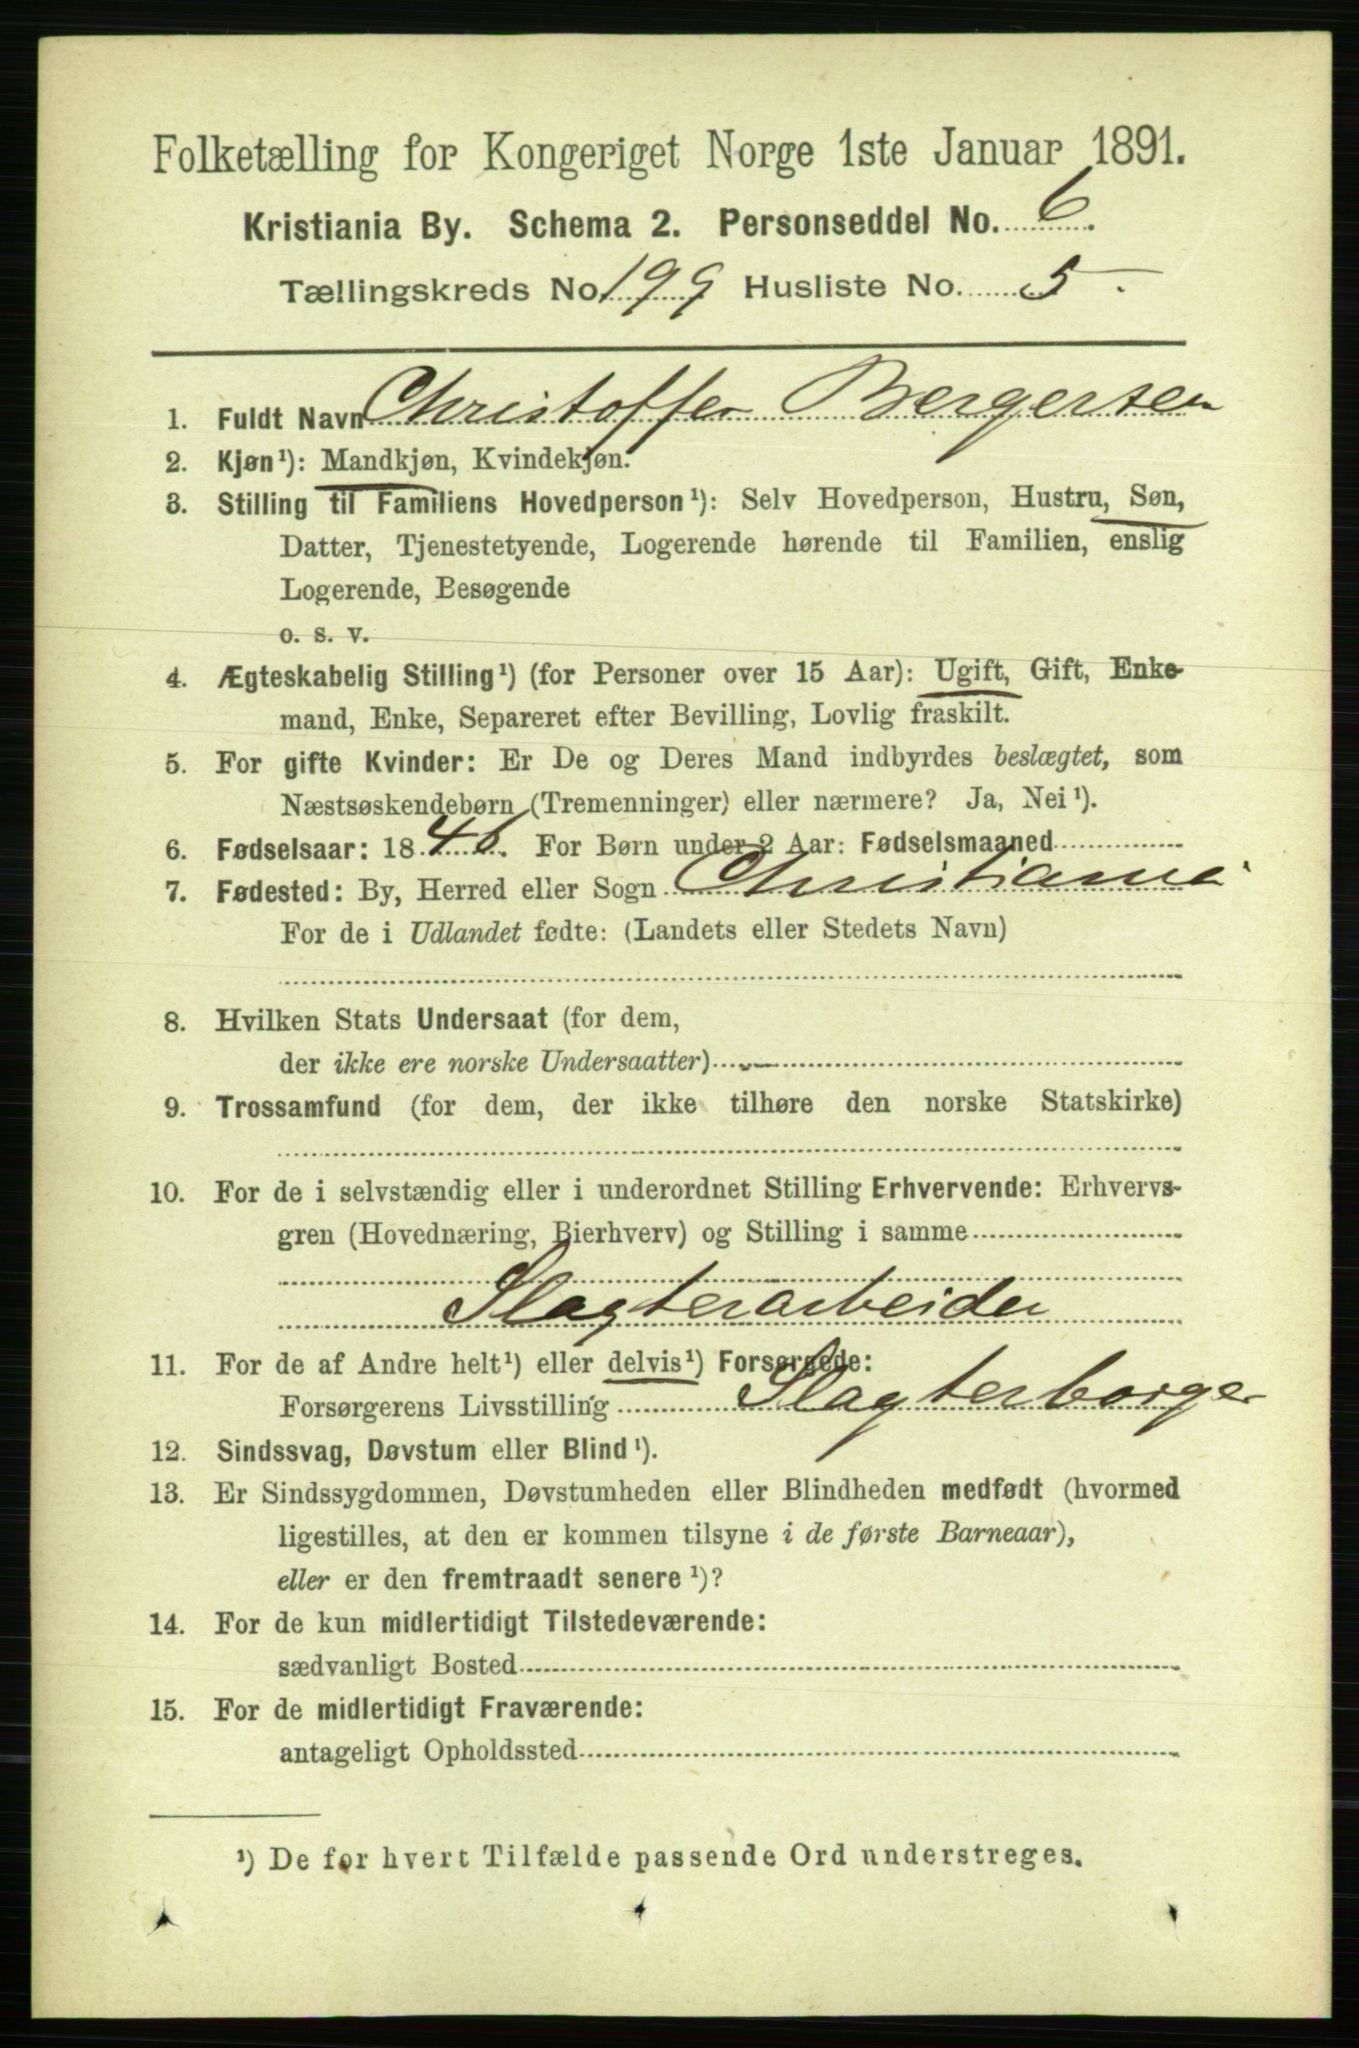 Folketælling for Kongeriget Norge 1ste Januar 1891.
Kristiania By. Schema 2. Personseddel No. 6.
Tællingskreds No. 199 Husliste No. 5.
1. Fuldt Navn Christoffer Bergersen
2. Kjøn¹): Mandkjøn, Kvindekjøn.
3. Stilling til Familiens Hovedperson¹): Selv Hovedperson, Hustru, Søn,
Datter, Tjenestetyende, Logerende hørende til Familien, enslig
Logerende, Besøgende
o. s. v.
4. Ægteskabelig Stilling¹) (for Personer over 15 Aar): Ugift, Gift, Enke-
mand, Enke, Separeret efter Bevilling, Lovlig fraskilt.
5. For gifte Kvinder: Er De og Deres Mand indbyrdes beslægtet, som
Næstsøskendebørn (Tremenninger) eller nærmere? Ja, Nei¹).
6. Fødselsaar: 1846. For Børn under 2 Aar: Fødselsmaaned
7. Fødested: By, Herred eller Sogn Christiania
For de i Udlandet fødte: (Landets eller Stedets Navn)
8. Hvilken Stats Undersaat (for dem,
der ikke ere norske Undersaatter)
9. Trossamfund (for dem, der ikke tilhøre den norske Statskirke)
10. For de i selvstændig eller i underordnet Stilling Erhvervende: Erhvervs-
gren (Hovednæring, Bierhverv) og Stilling i samme
Slagterarbeider
11. For de af Andre helt¹) eller delvis¹) Forsørgede:
Forsørgerens Livsstilling Slagterborger
12. Sindssvag, Døvstum eller Blind¹).
13. Er Sindssygdommen, Døvstumheden eller Blindheden medfødt (hvormed
ligestilles, at den er kommen tilsyne i de første Barneaar),
eller er den fremtraadt senere¹)?
14. For de kun midlertidigt Tilstedeværende:
sædvanligt Bosted
15. For de midlertidigt Fraværende:
antageligt Opholdssted
¹) De for hvert Tilfælde passende Ord understreges.